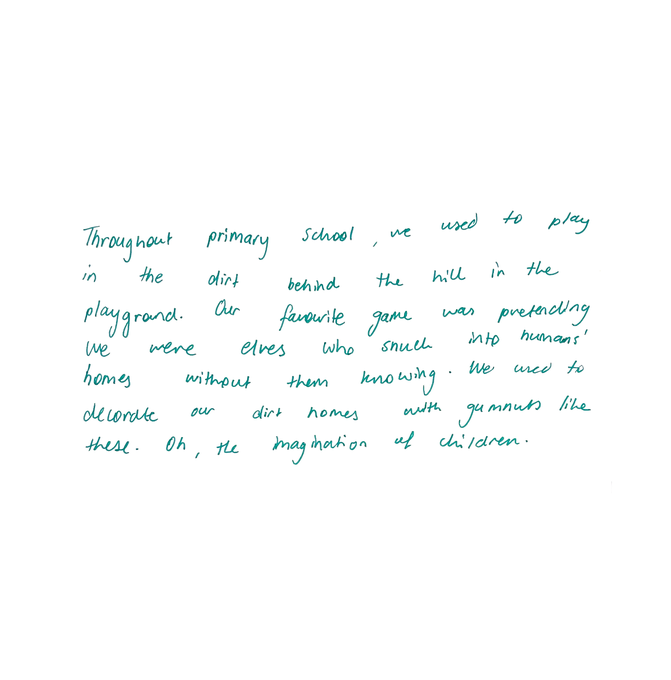 Throughout primary school, we used to play
in the dirt behind the hill in the
playground. Our favourite game was pretending
we were elves who snuck into humans'
homes without them knowing. We used to
decorate our dirt homes with gumnuts like
these. Oh, the imagination of children.